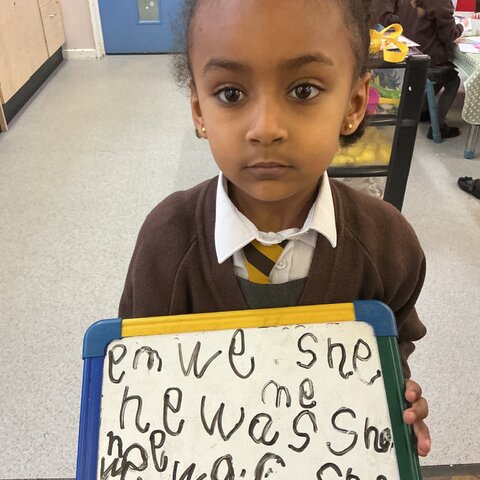 em we she
me
he was she
me
we was she